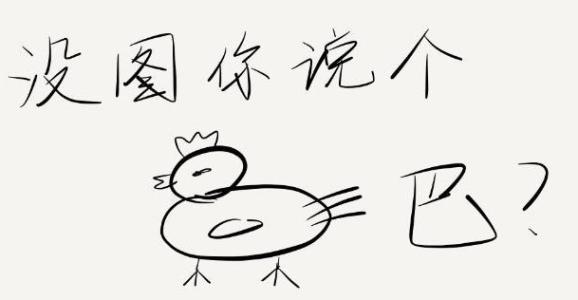 没图你说个
巴?